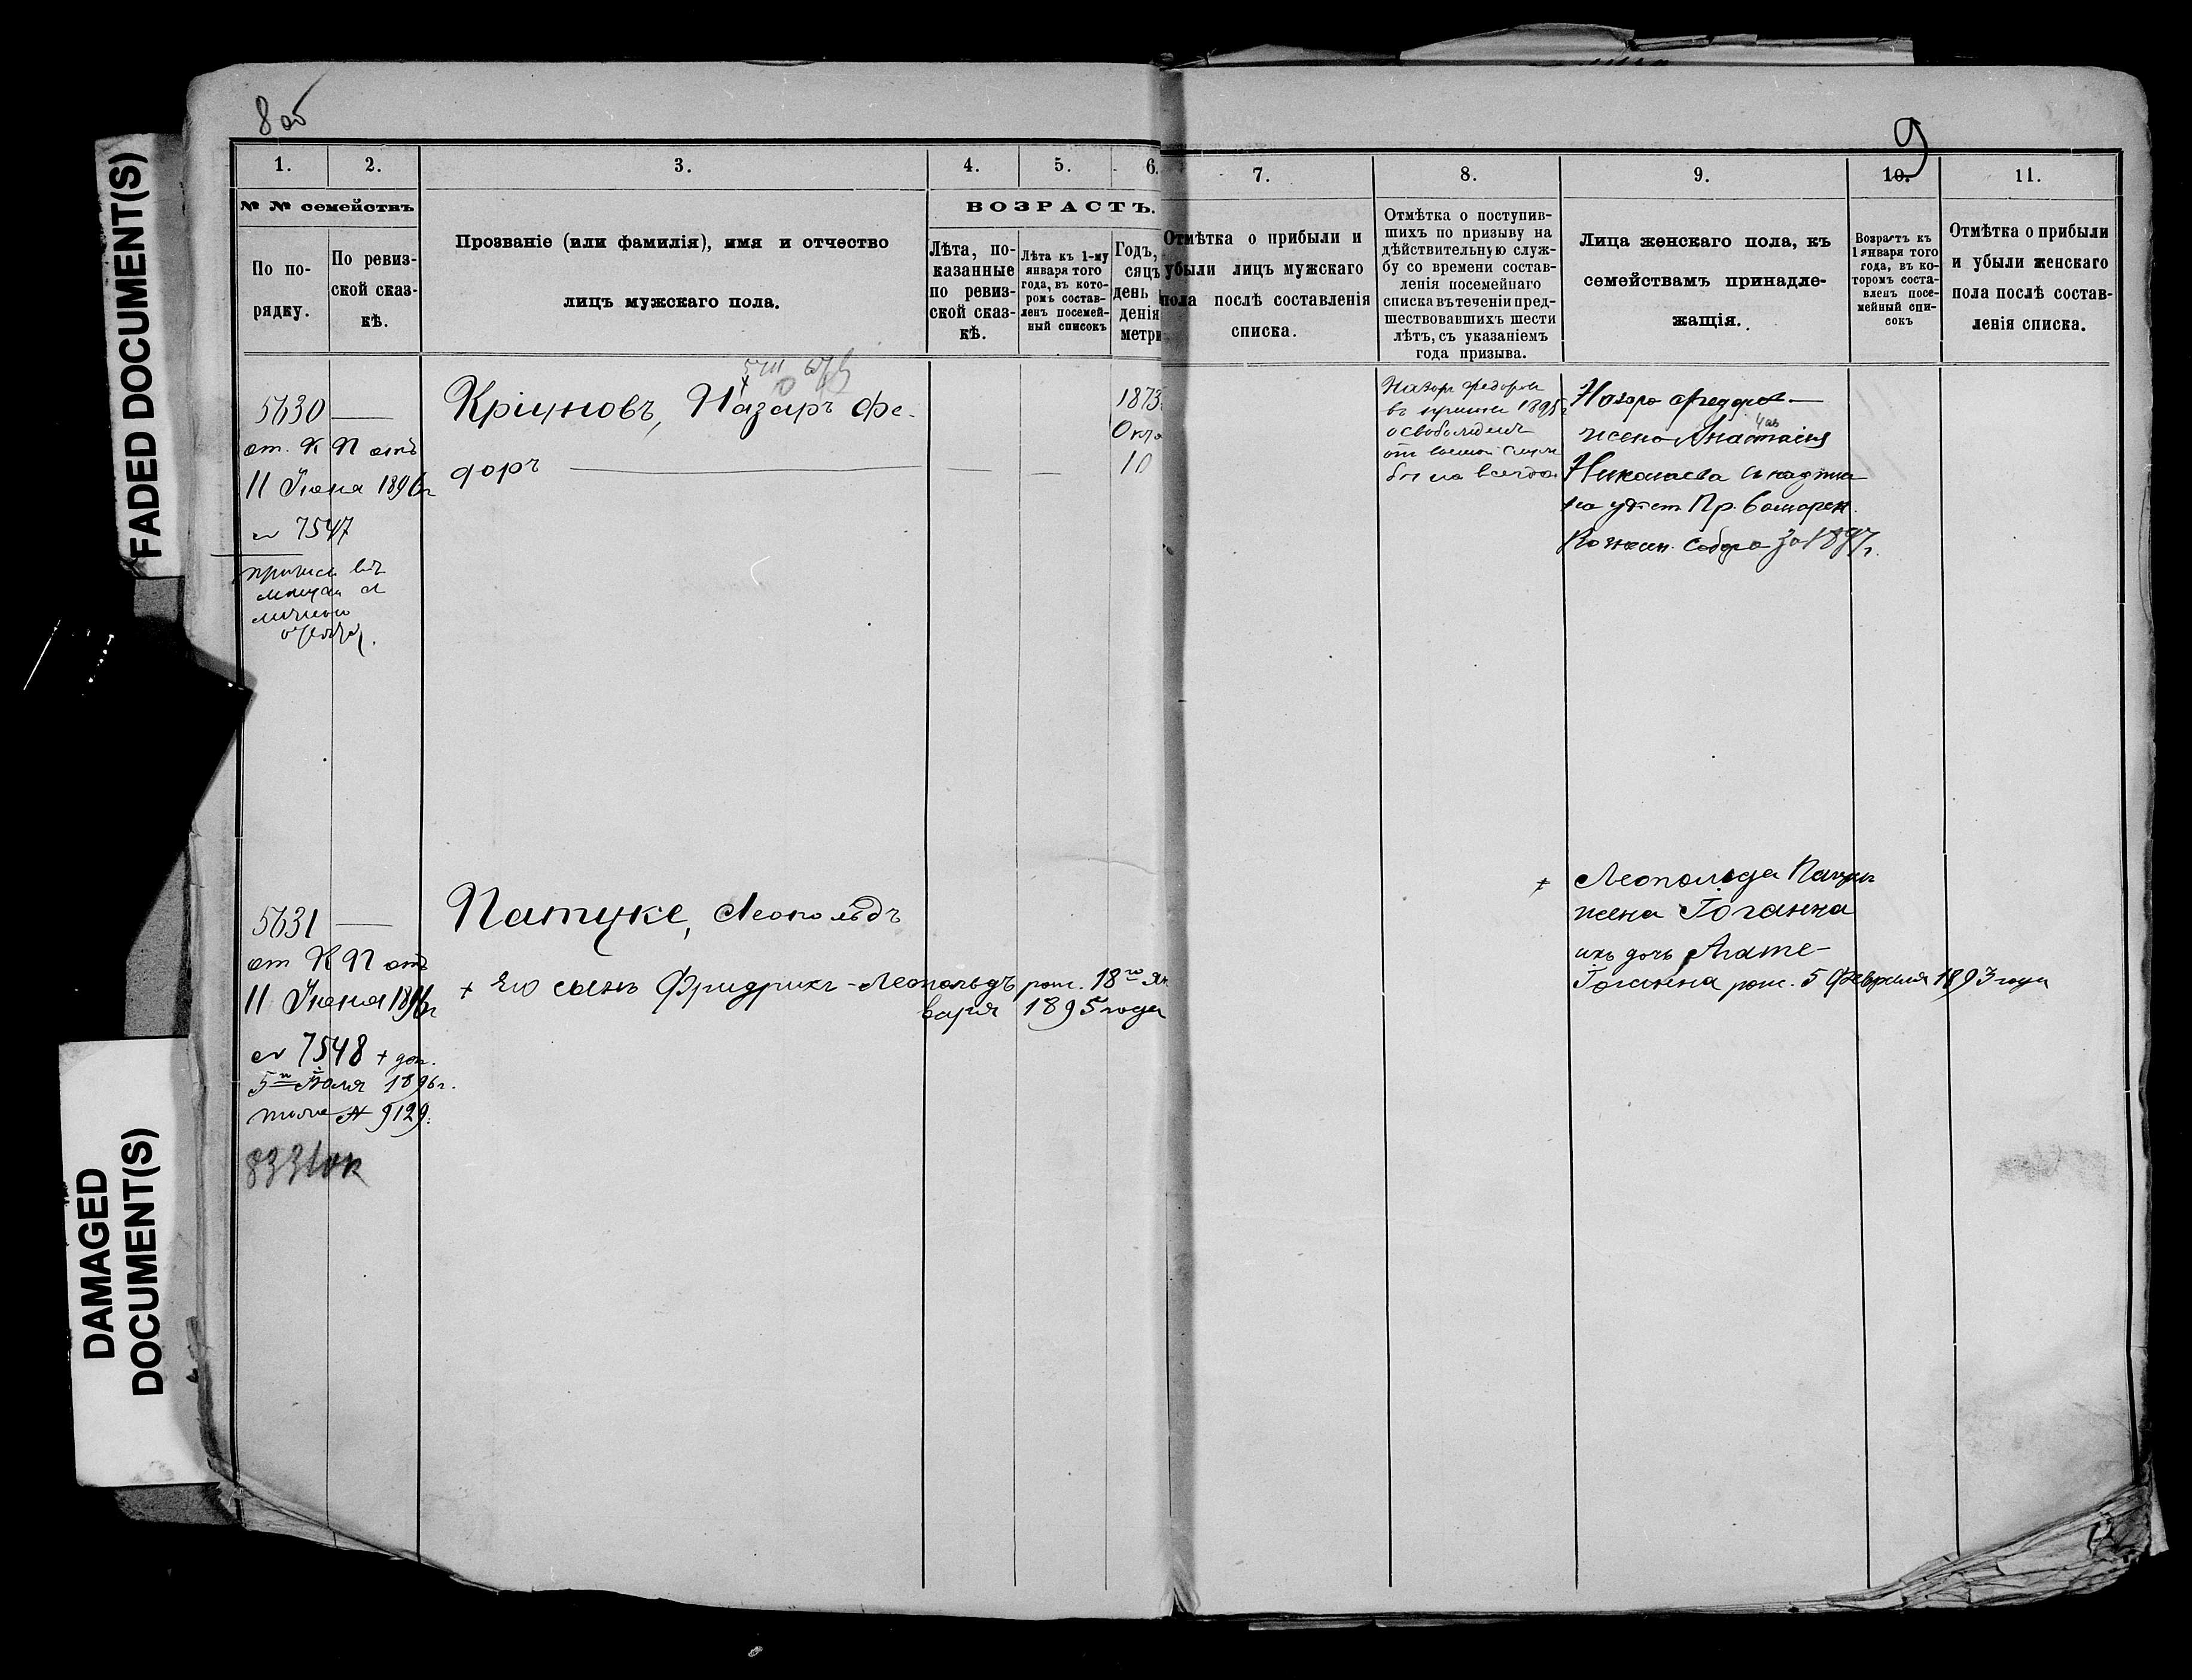 FADED DOCUMENT(S)
DAMAGED
DOCUMENT(S)
8 об
9
1.
2.
3.
4.
5.
6.
7.
8.
9.
10.
11.
№ № семействъ
По по-
рядку.
По ревиз-
ской сказ-
кѣ.
Прозваніе (или фамилія), имя и отчество
лицъ мужскаго пола.
ВОЗРАСТЪ.
Лѣта, по-
казанные
по ревиз-
ской сказ-
кѣ.
Лѣта къ 1-му
января того
года, въ кото-
ромъ состав-
ленъ посемей-
ный списокъ
Годъ,
сяцъ
день
денія
метри
Отмѣтка о прибыли и
убыли лицъ мужскаго
пола послѣ составленія
списка.
Отмѣтка о поступив-
шихъ по призыву на
дѣйствительную служ-
бу со времени состав-
ленія посемейнаго
списка въ теченіи пред-
шествовавшихъ шести
лѣтъ, съ указаніемъ
года призыва.
Лица женскаго пола, къ
семействамъ принадле-
жащія.
Возрастъ къ
1 января того
года, въ ко-
торомъ соста-
вленъ посе-
мейный спи-
сокъ
Отмѣтка о прибыли
и убыли женскаго
пола послѣ состав-
ленія списка.
5630
от. К П отъ
11 Іюня 1896 г
№ 7547
Кріуновъ, Назаръ Фе-
доръ
1873
Окт
10
Назаръ Федоров
въ 1895 г
освобожденъ
от военной служ
бы на всегда
Назара Федоров
жена Анастасія
Николаева
Пр.
Собора за 1897 г.
5631
от К П отъ
11 Іюня 1896 г
№ 7548 + доп.
5го Іюля 1896 г.
№ 9129.
Патцке, Леопольдъ
+ Его сынъ Фридрихъ-Леопольдъ рож. 18го Ян
варя 1895 года
+ Леопольда Патцке
жена Іоганна
ихъ дочь Агате-
Іоганна рож. 5 Февраля 1893 года